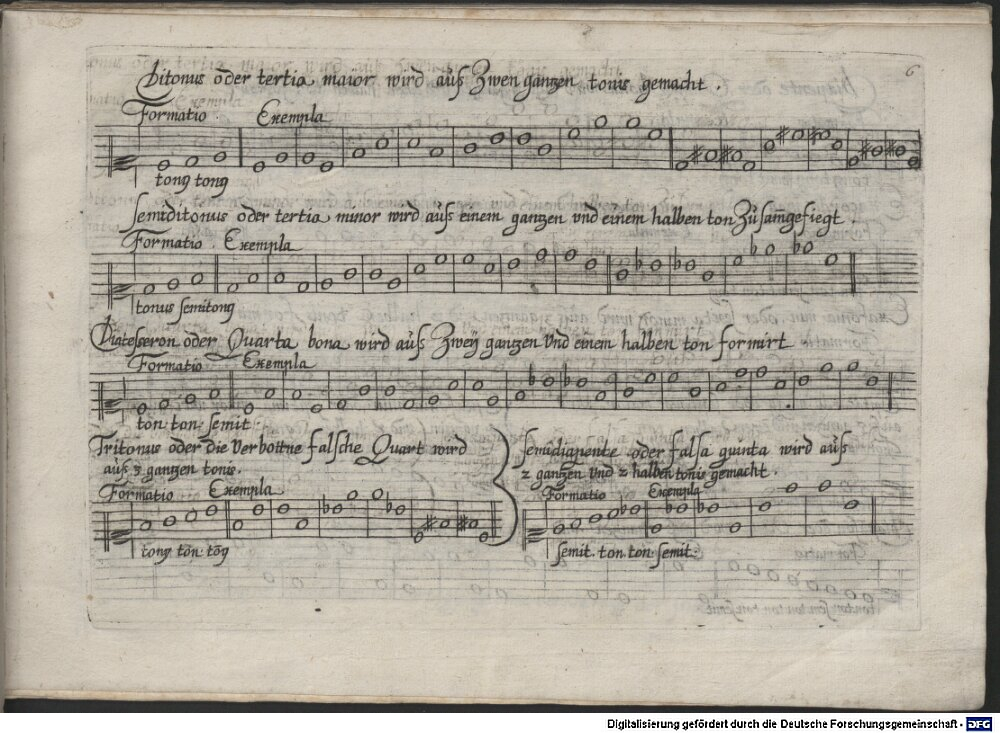 6
Ditonus oder tertia maior wird auß Zwen gantzen tonis gemacht.
Formatio Exempla
tonꝰ tonꝰ
Semiditonus oder tertia minor wird auß einem gantzen vnd einem halben ton Zusamgefiegt.
Formatio Exempla
tonus semitonꝰ
Diatesseron oder Quarta bona wird auß Zweÿ gantzen Vnd einem halben ton formirt
Formatio Exempla
ton ton semit
Tritonus oder die Verbottne falsche Quart wird
auß 3 gantzen tonis.
Formatio Exempla
tonꝰ ton tonꝰ
Semidiapente oder falsa quinta wird auß
2 gantzen Vnd 2 halben tonis gemacht.
Formatio Exempla
semit. ton ton semit.
Digitalisierung gefördert durch die Deutsche Forschungsgemeinschaft - DFG